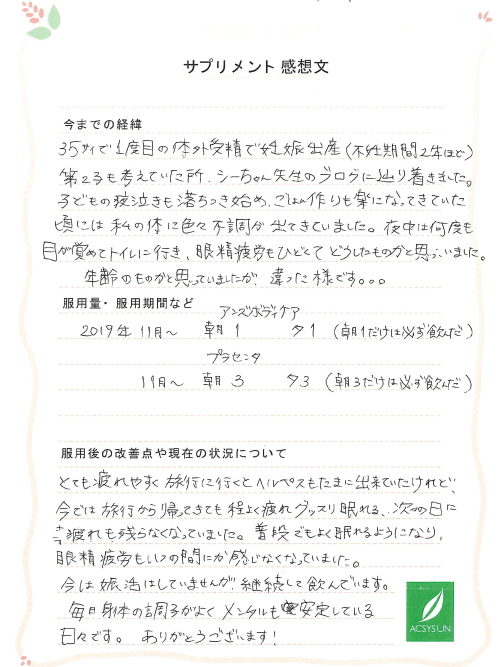 サプリメント 感想文
今までの経緯
35才で1度目の体外受精で妊娠出産(不妊期間2年ほど)
第2子も考えていた所、シーちゃん先生のブログに辿り着きました。
子どもの夜泣きも落ちつき始め、ごはん作りも楽になってきていた
頃には私の体に色々不調が出てきていました。夜中は何度も
目が覚めてトイレに行き、眼精疲労もひどくてどうしたものかと思っいました。
年齢のものかと思っていましたが、違った様です。。。
服用量・服用期間など
アンズボディケア
2019年11月~ 朝1 夕1 (朝1だけは必ず飲んだ)
プラセンタ
11月~ 朝3 夕3 (朝3だけは必ず飲んだ)
服用後の改善点や現在の状況について
とても疲れやすく旅行に行くとヘルペスもたまに出来ていたけれど、
今では旅行から帰ってきても程よく疲れグッスリ眠れる、次の日に
疲れも残らなくなっていました。普段でもよく眠れるようになり、
眼精疲労もいつの間にか感じなくなっていました。
今は妊活はしていませんが、継続して飲んでいます。
毎日身体の調子がよくメンタルも安定している
日々です。ありがとうございます!
ACSYSUN